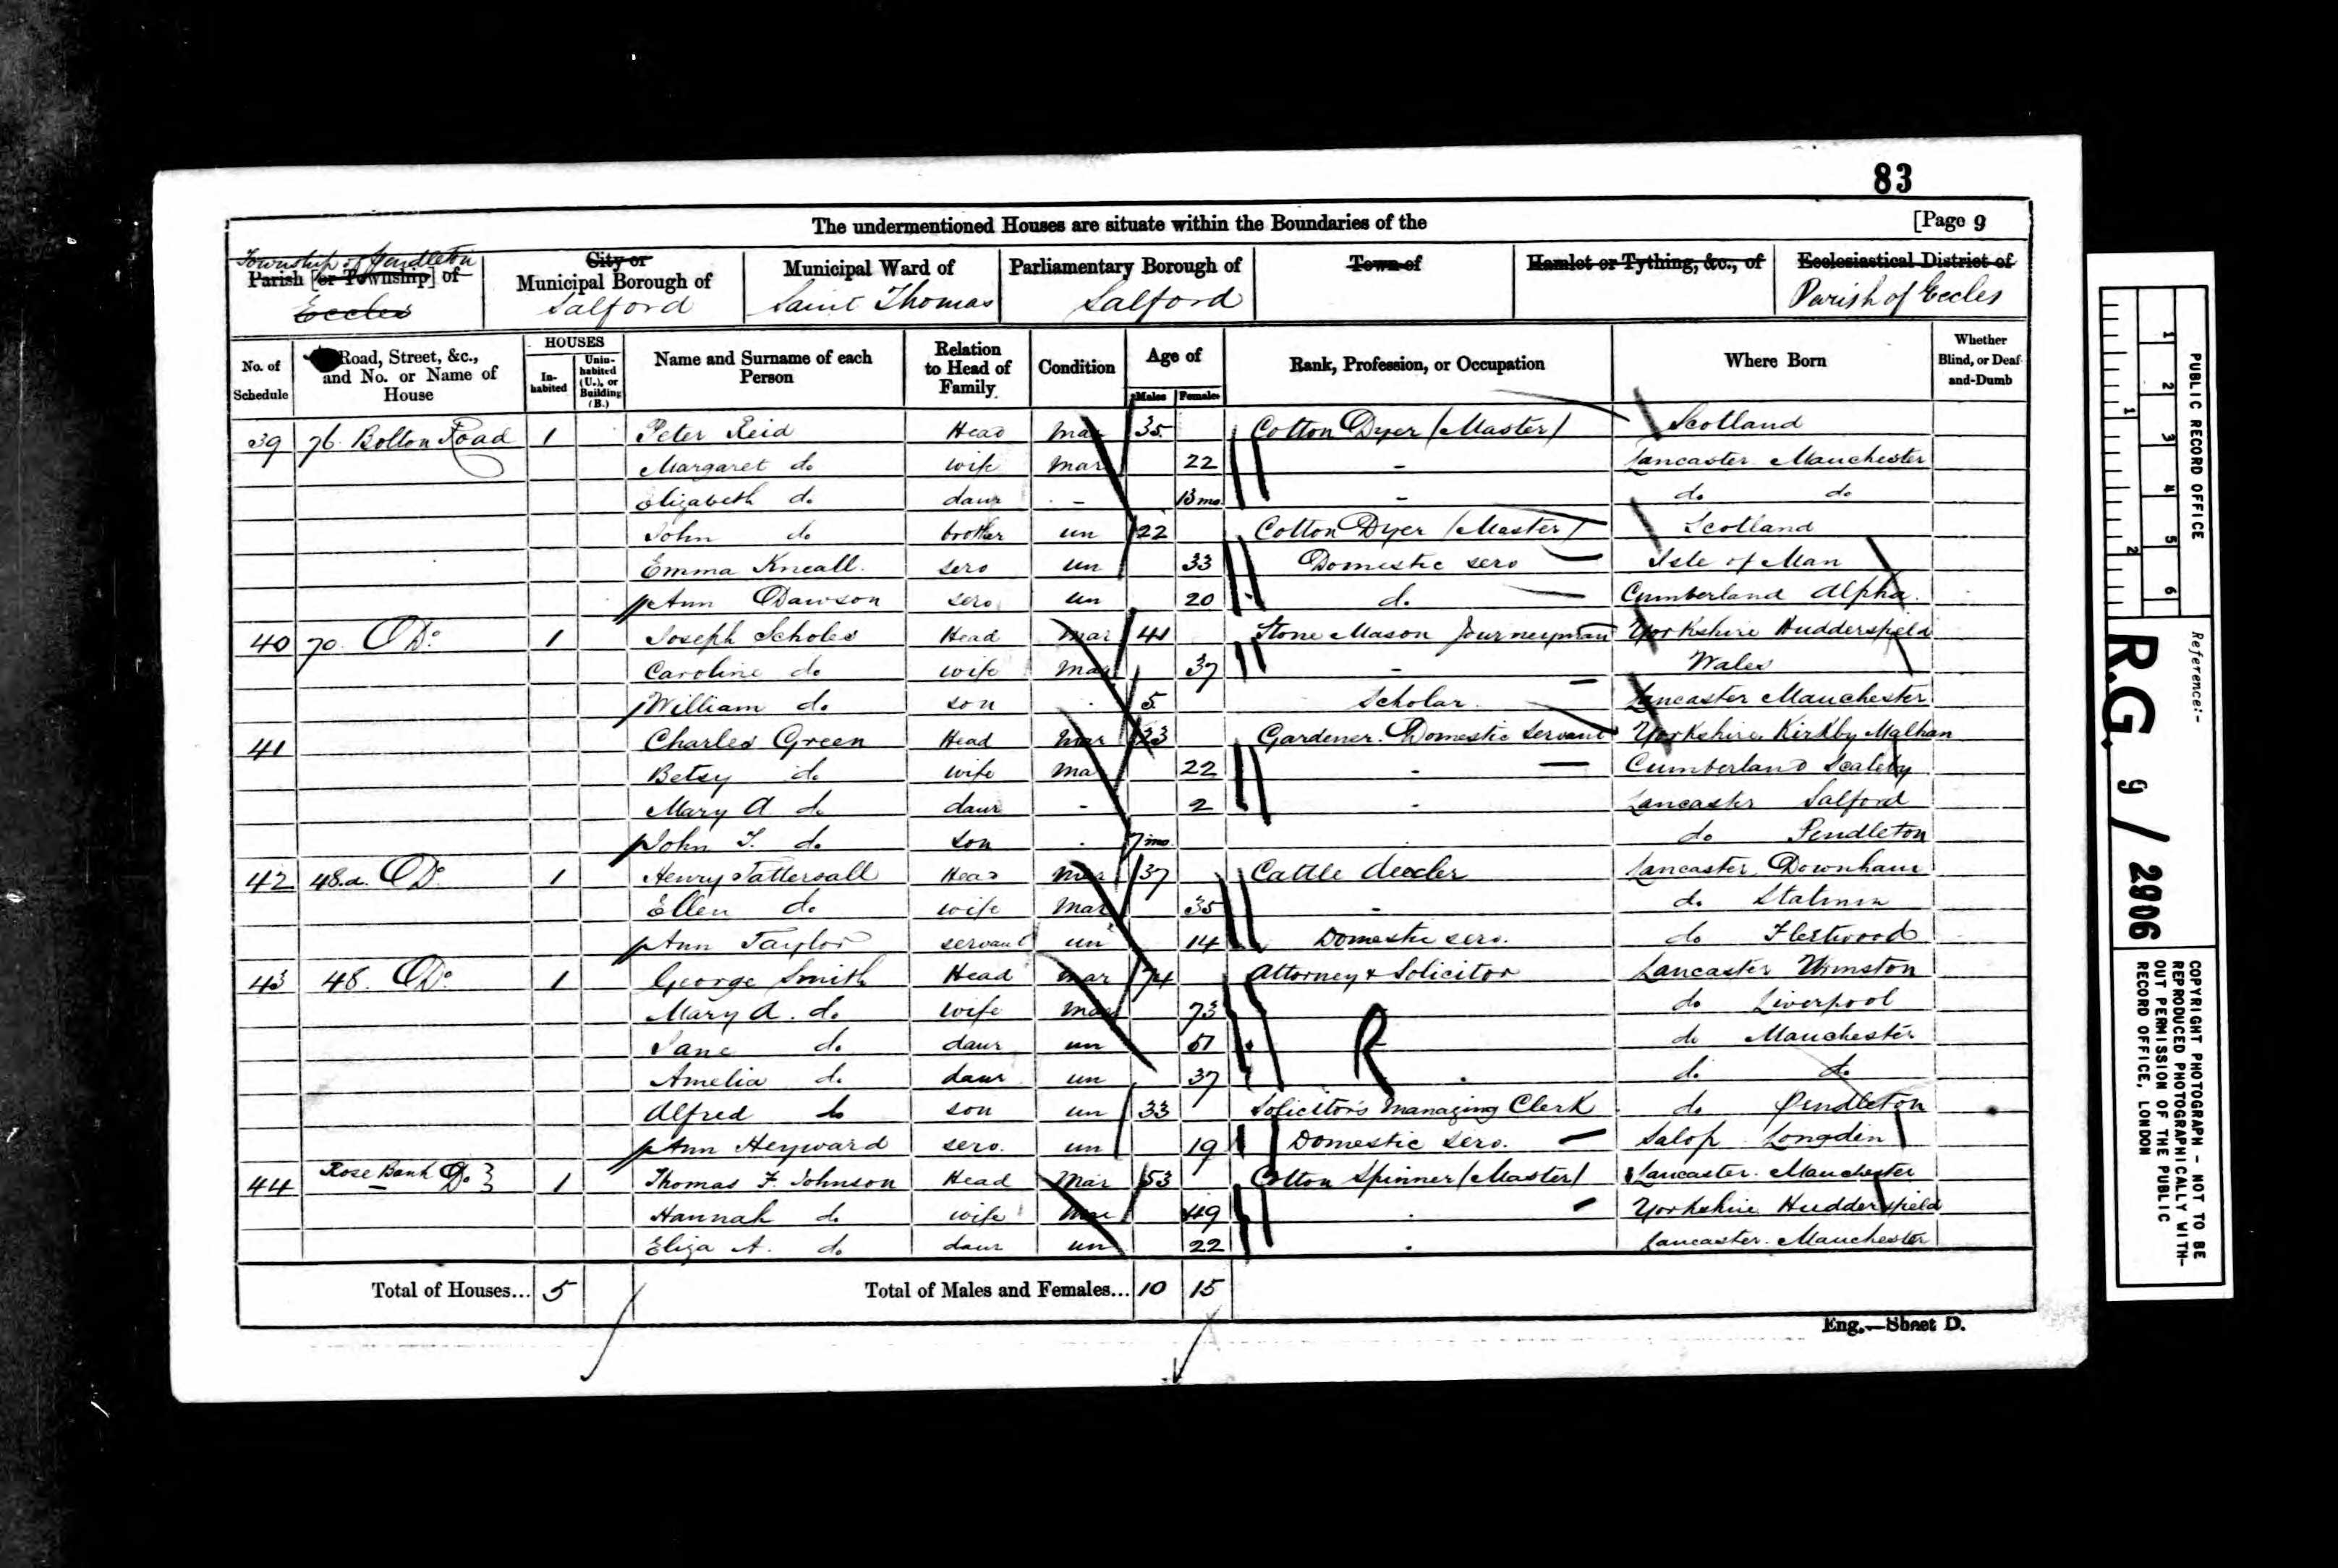 83
The undermentioned Houses are situate within the Boundaries of the [Page 9
Township of Pendleton
Parish [or Township] of Eccles
City or Municipal Borough of Salford
Municipal Ward of Saint Thomas
Parliamentary Borough of Salford
Town of
Hamlet or Tything, &c., of
Ecclesiastical District of Parish of Eccles
No. of Schedule
Road, Street, &c., and No. or Name of House
HOUSES
In-habited
Unin-habited (U.), or Building (B.)
Name and Surname of each Person
Relation to Head of Family
Condition
Age of
Males Females
Rank, Profession, or Occupation
Where Born
Whether Blind, or Deaf-and-Dumb
39 76 Bolton Road 1 Peter Reid Head Mar 35 Cotton Dyer (Master) Scotland
Margaret do wife Mar 22 - Lancaster Manchester
Elizabeth do daur - 13 mo. - do do
John do brother un 22 Cotton Dyer (Master) Scotland
Emma Kneall serv un 33 Domestic serv Isle of Man
Ann Dawson serv un 20 do
Cumberland
40 70 Do 1 Joseph Scholes Head Mar 41 Stone Mason Journeyman Yorkshire Huddersfield
Caroline do wife Mar 37 - Wales
William do son . 5 Scholar Lancaster Manchester
41 Charles Green Head Mar 23 Gardener Domestic Servant Yorkshire Kirkby Malham
Betsy do wife Mar 22 - Cumberland Scaleby
Mary A. do daur - 2 - Lancaster Salford
John T. do son . 7 mo. . do Pendleton
42 48.a. Do 1 Henry Tattersall Head Mar 37 Cattle dealer Lancaster Downham
Ellen do wife Mar 35 - do
Ann Taylor servant un 14 Domestic serv. do Fleetwood
43 48. Do 1 George Smith Head Mar 74 Attorney & Solicitor Lancaster
Mary A. do wife Mar 73 do Liverpool
Jane do daur un 51 R do Manchester
Amelia do daur un 37 . do do
Alfred do son un 33 Solicitor's Managing Clerk do Pendleton
Ann Heyward serv. un 19 Domestic serv. Salop
44 Rose Bank Do } 1 Thomas F. Johnson Head Mar 53 Cotton Spinner (Master) Lancaster Manchester
Hannah do wife Mar 49 . Yorkshire Huddersfield
Eliza A. do daur un 22 . Lancaster Manchester
Total of Houses... 5 Total of Males and Females... 10 15
Eng.—Sheet D.
PUBLIC RECORD OFFICE
1 2 3 4 5 6
1 2
Reference:-
R.G. 9 / 2906
COPYRIGHT PHOTOGRAPH - NOT TO BE
REPRODUCED PHOTOGRAPHICALLY WITH-
OUT PERMISSION OF THE PUBLIC
RECORD OFFICE, LONDON